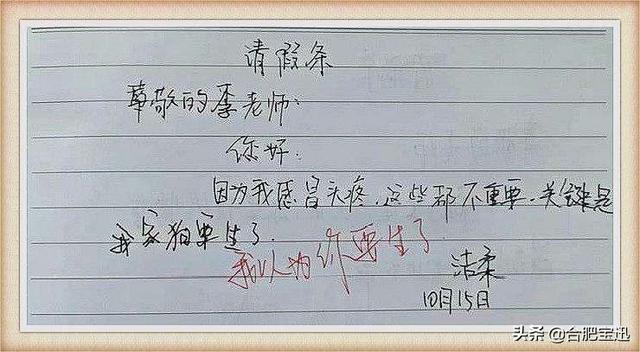 请假条
尊敬的李老师:
你好:
因为我感冒头疼,这些都不重要.关键是
我家狗要生了.
我以为你要生了
洁柔
10月15日
头条 @合肥宝迅